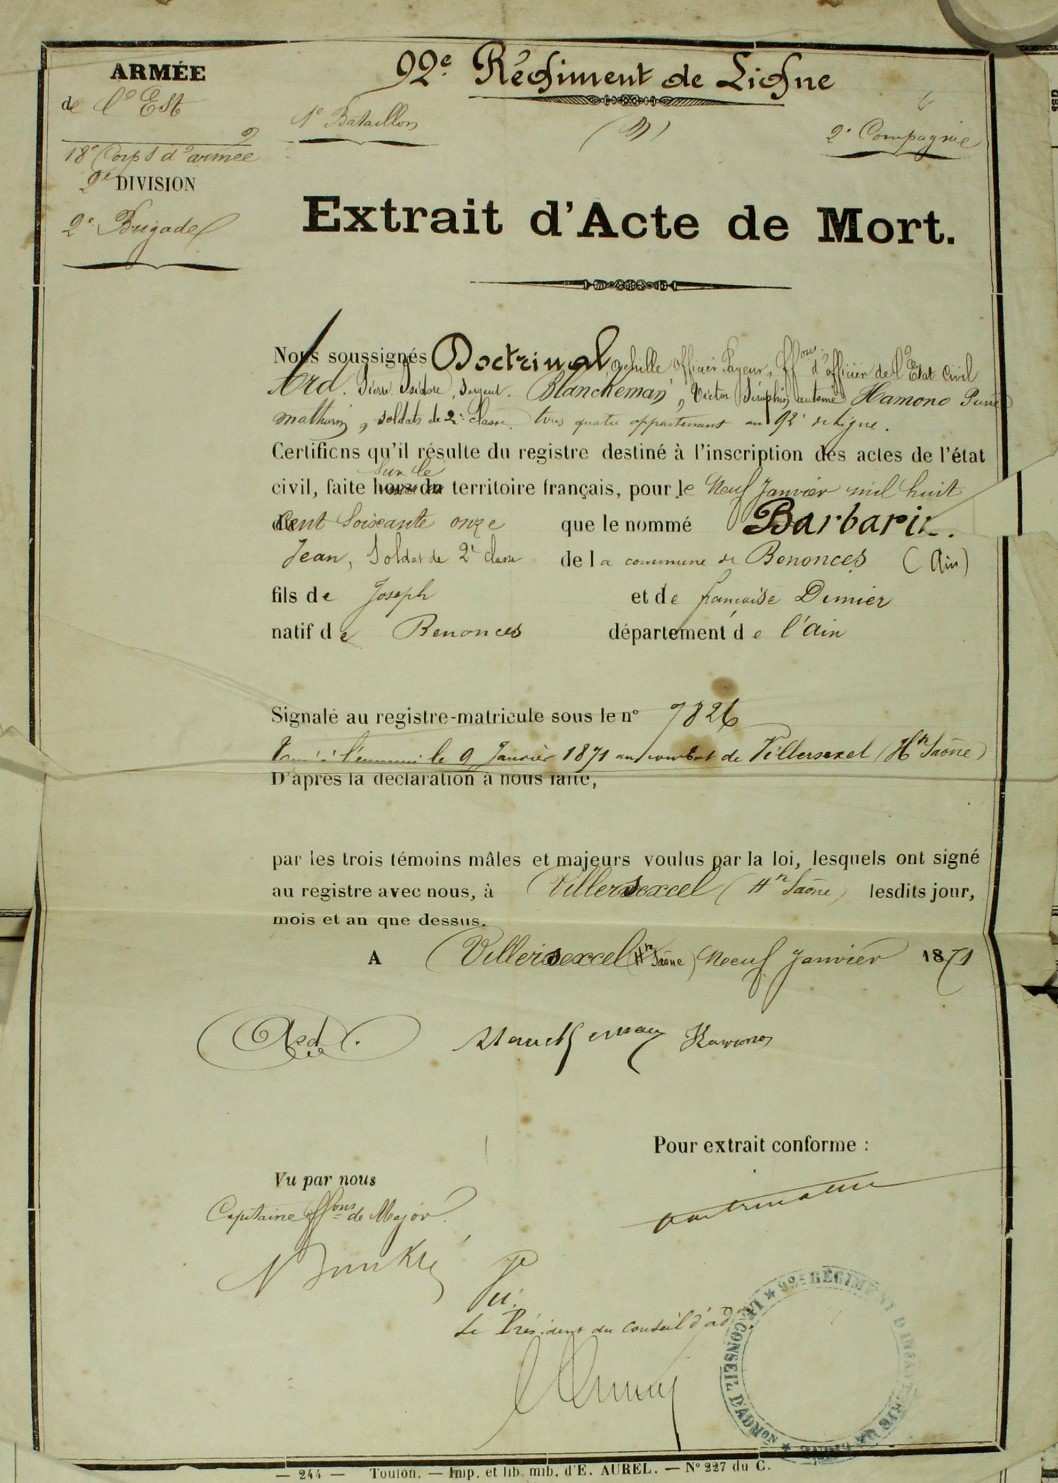 ARMÉE
de l'Est
18e Corps d'armée
2e DIVISION
2e Brigade
92e Régiment de Ligne
1e Bataillon
2e Compagnie
Extrait d'Acte de Mort.
Nous soussignés Doctrinal, Achille officier Payeur, ffons d'officier de l'Etat Civil
Ard. Pierre Isidore, Sergent. Blanckeman, Victor Séraphin Hamono Pierre
Mathurin, soldats de 2e Classe, tous quatre appartenant au 92e de Ligne.
Certifions qu'il résulte du registre destiné à l'inscription des actes de l'état
sur le
civil, faite hors du territoire français, pour le Neuf Janvier mil huit
cent Soixante onze que le nommé Barbarin.
Jean, Soldat de 2e classe de la commune de Benonces (Ain)
fils de Joseph et de françoise Dimier
natif de Benonces département de l'Ain
Signalé au registre-matricule sous le no 7826
l'ennemi le 9 Janvier 1871 au combat de Villersexel (Hte Saône)
D'après la déclaration à nous faite,
par les trois témoins mâles et majeurs voulus par la loi, lesquels ont signé
au registre avec nous, à Villersexcel (Hte Saône) lesdits jour,
mois et an que dessus.
A Villersexcel (Hte Saône) Neuf Janvier 1871
Ard Blanckeman Hamono
Pour extrait conforme :
Vu par nous
Capitaine ffons de Major
Vu:
Le Président du conseil d'ad
92e RÉGIMENT D'INFANTERIE DE LIGNE ★ CONSEIL D'ADMON ★
— 244 — Toulon. — Imp. et lib. mib. d'E. AUREL. — No 227 du C.